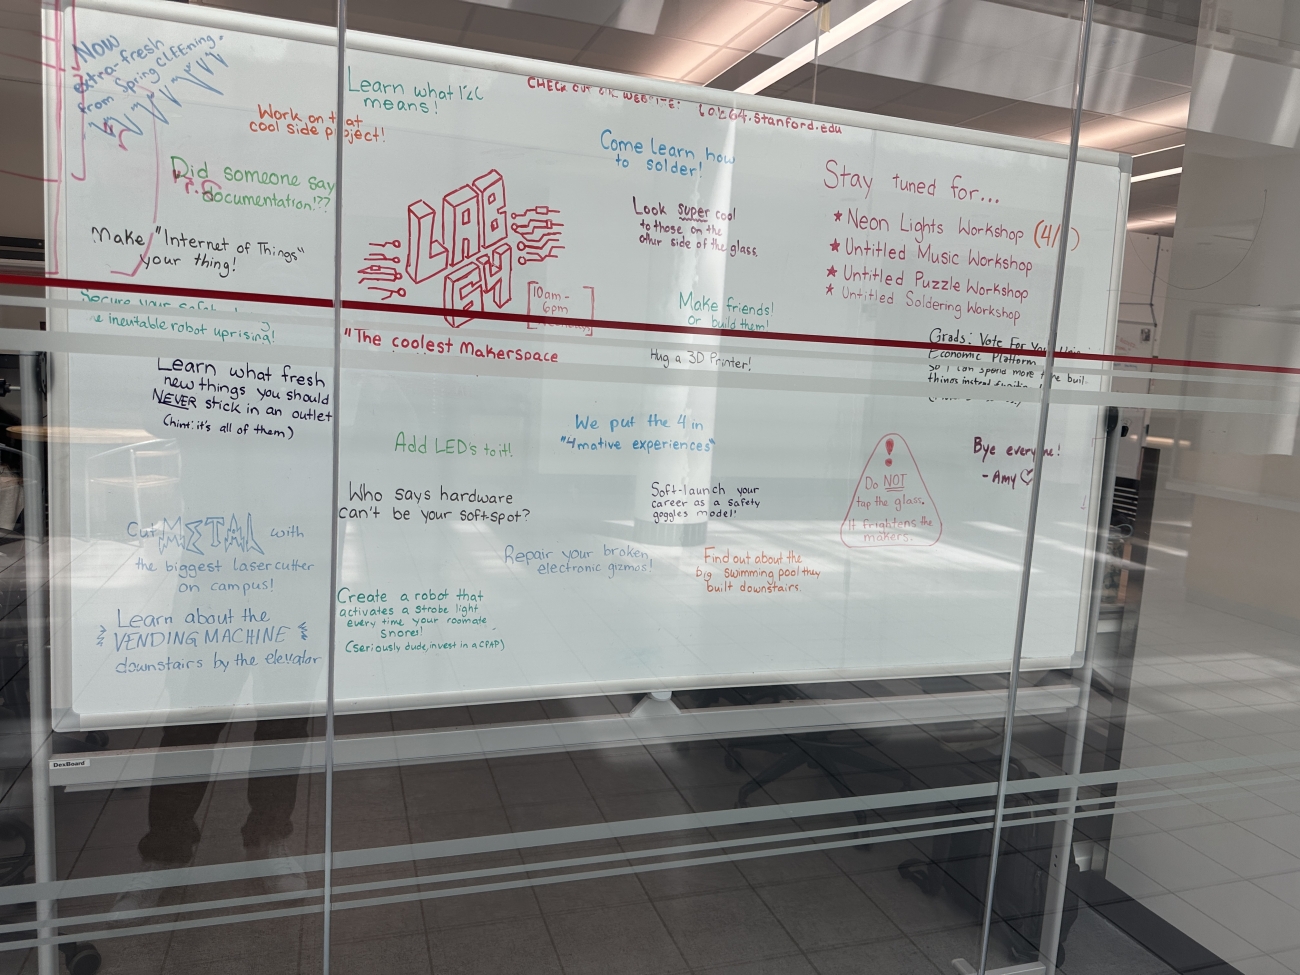 Now
extra-fresh
from Spring CLEEning.
Learn what I2C
means!
CHECK OUT OUR WEBSITE: lab64.stanford.edu
Work on that
cool side project!
Come learn how
to solder!
Did someone say
documentation!??
Stay tuned for...
★ Neon Lights Workshop (4/
★ Untitled Music Workshop
★ Untitled Puzzle Workshop
★ Untitled Soldering Workshop
LAB
64
[10am-
6pm
Look super cool
to those on the
other side of the glass.
Make "Internet of Things"
your thing!
Secure your safety
inevitable robot uprising!
Make friends!
or build them!
"The coolest Makerspace
Hug a 3D Printer!
Grads: Vote For
Economic Platform
so I can spend more
things instead
Learn what fresh
new things you should
NEVER stick in an outlet
(hint: it's all of them)
Add LEDs to it!
We put the 4 in
"4mative experiences"
!
Do NOT
tap the glass.
It frightens the
makers.
Bye everyone!
- Amy ♡
Who says hardware
can't be your soft-spot?
Soft-launch your
career as a safety
goggles model!
Cut METAL with
the biggest laser cutter
on campus!
Repair your broken
electronic gizmos!
Find out about the
big swimming pool they
built downstairs.
Learn about the
VENDING MACHINE
downstairs by the elevator
Create a robot that
activates a strobe light
every time your roomate
snores!
(seriously dude, invest in a CPAP)
DexBoard